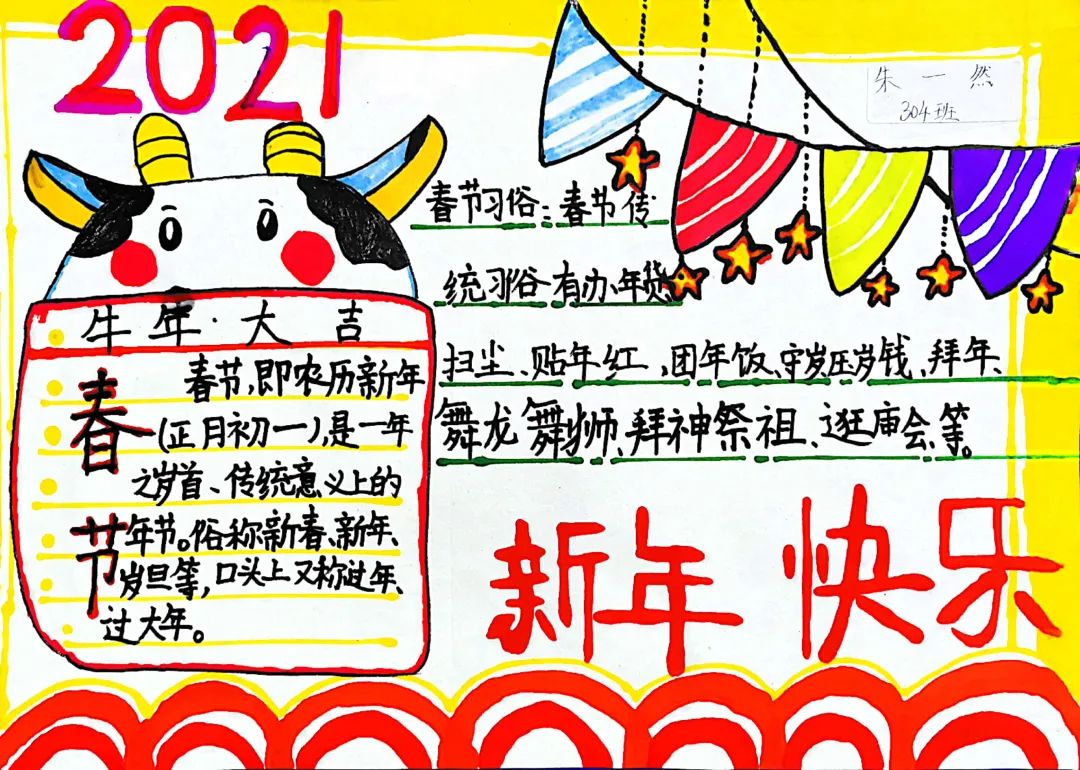 2021
朱一然
304班
春节习俗：春节传
统习俗有办年货
扫尘、贴年红、团年饭、守岁压岁钱、拜年、
舞龙舞狮、拜神祭祖、逛庙会等。
牛年·大吉
春节
春节，即农历新年
(正月初一)，是一年
之岁首、传统意义上的
年节。俗称新春、新年、
岁旦等，口头上又称过年、
过大年。
新年快乐